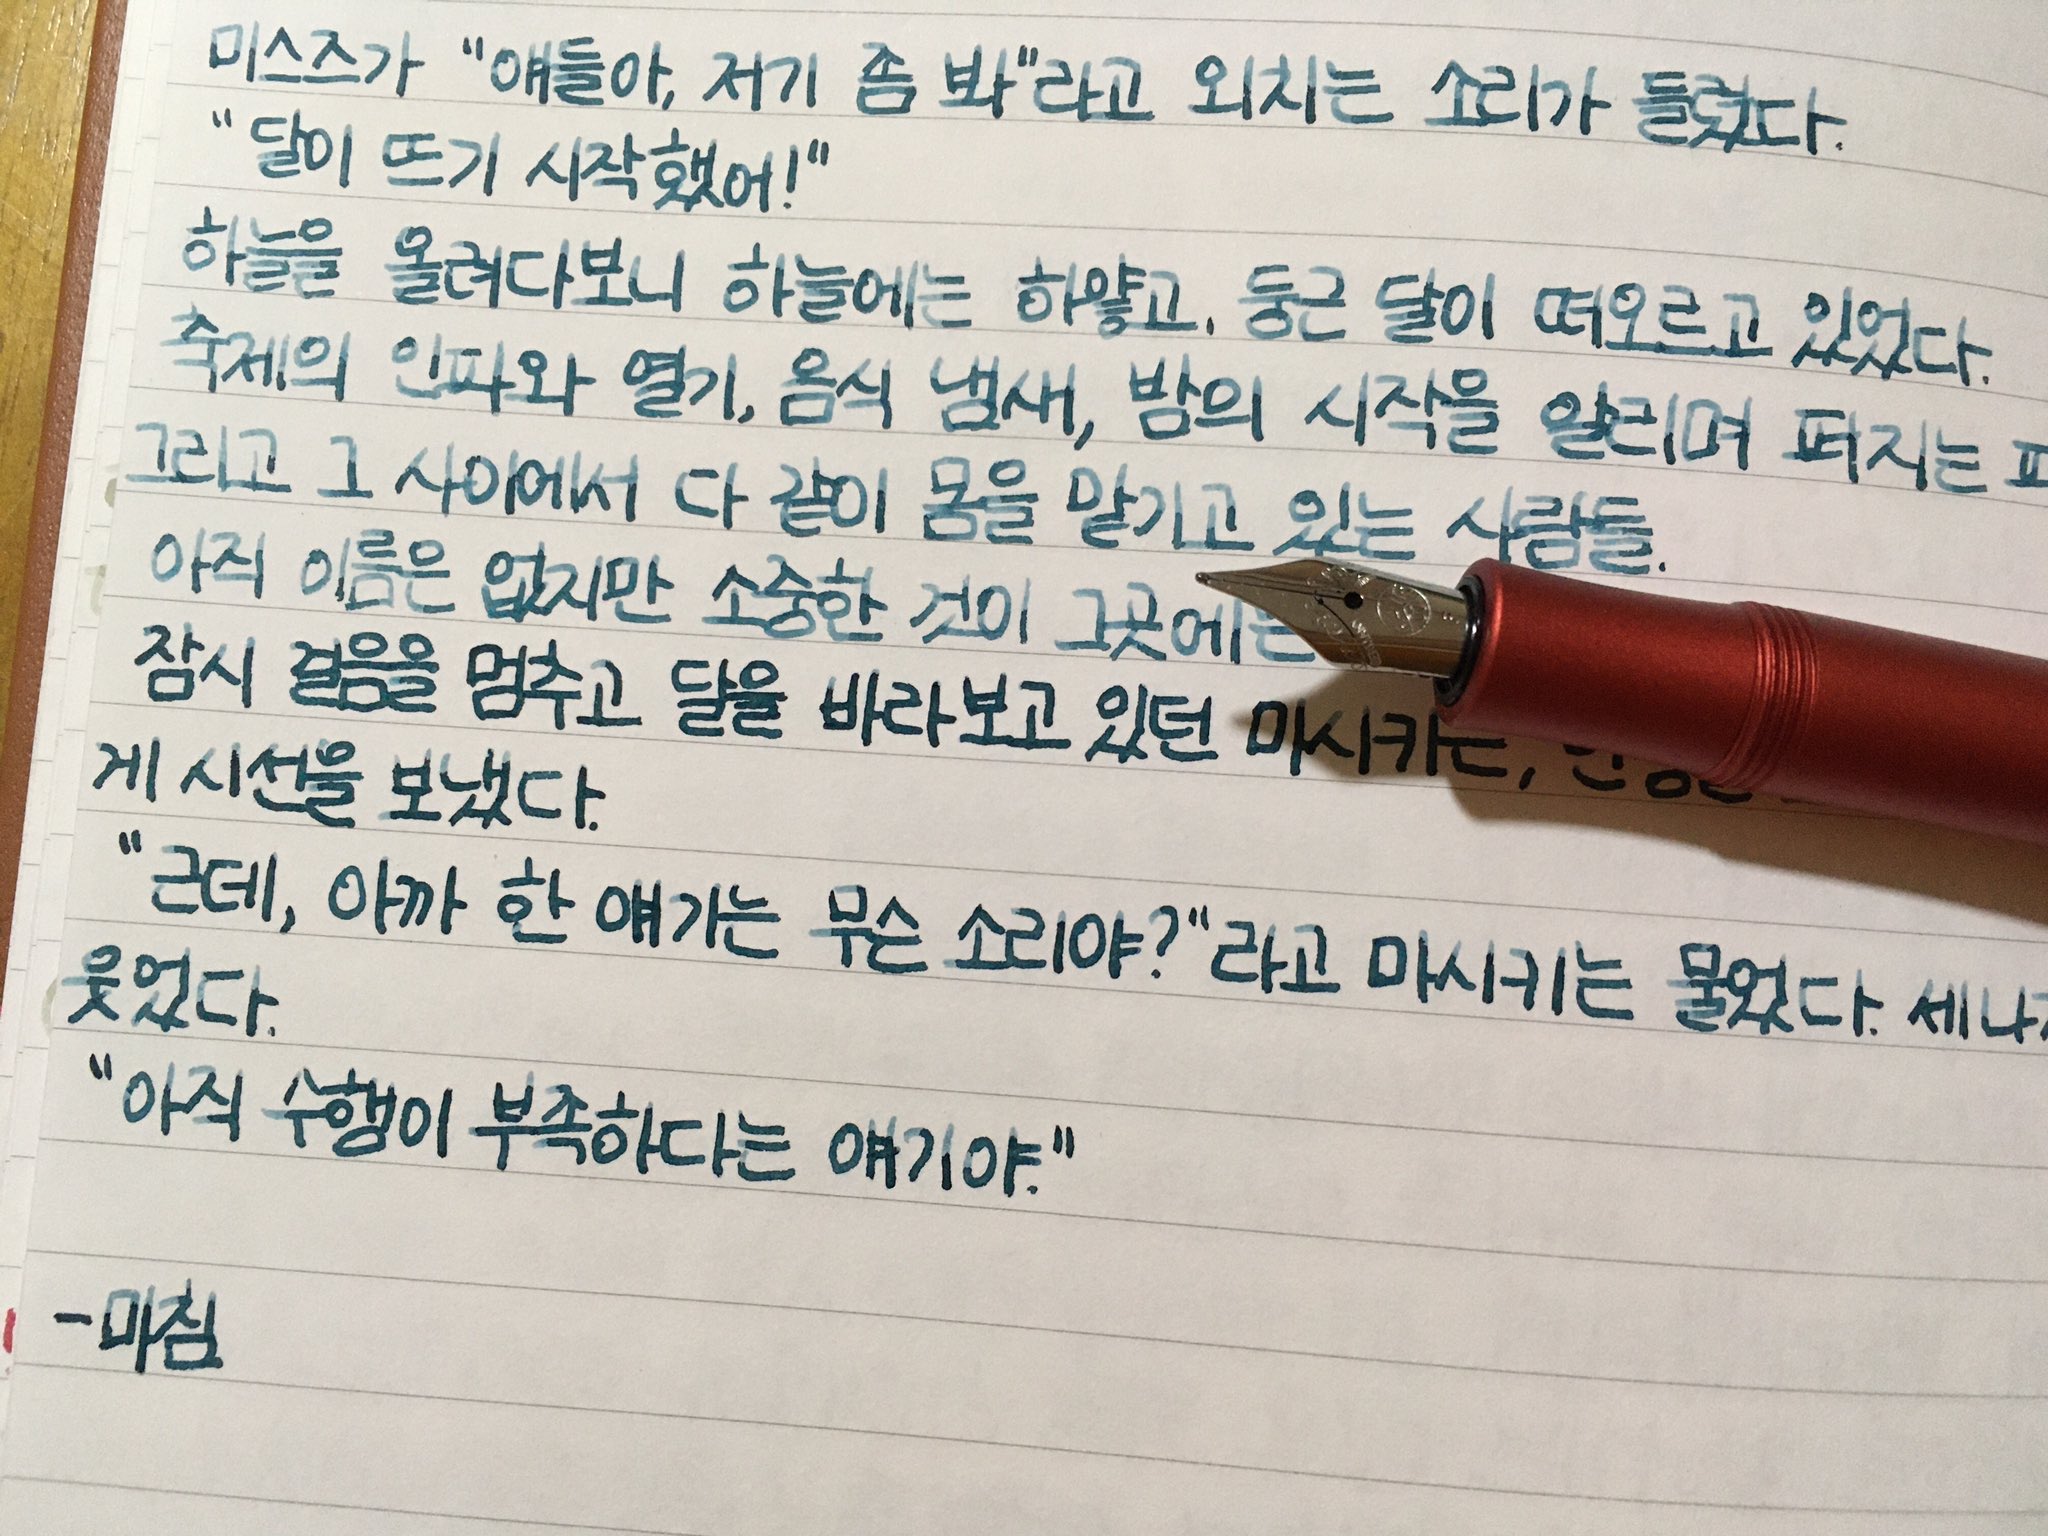 미스즈가 "얘들아, 저기 좀 봐"라고 외치는 소리가 들렸다.
"달이 뜨기 시작했어!"
하늘을 올려다보니 하늘에는 하얗고, 둥근 달이 떠오르고 있었다.
축제의 인파와 열기, 음식 냄새, 밤의 시작을 알리며 퍼지는
그리고 그 사이에서 다 같이 몸을 맡기고 있는 사람들.
아직 이름은 없지만 소중한 것이 그곳에는
잠시 걸음을 멈추고 달을 바라보고 있던 마시키는,
게 시선을 보냈다.
"근데, 아까 한 얘기는 무슨 소리야?"라고 마시키는 물었다. 세나
웃었다.
"아직 수행이 부족하다는 얘기야."
-마침